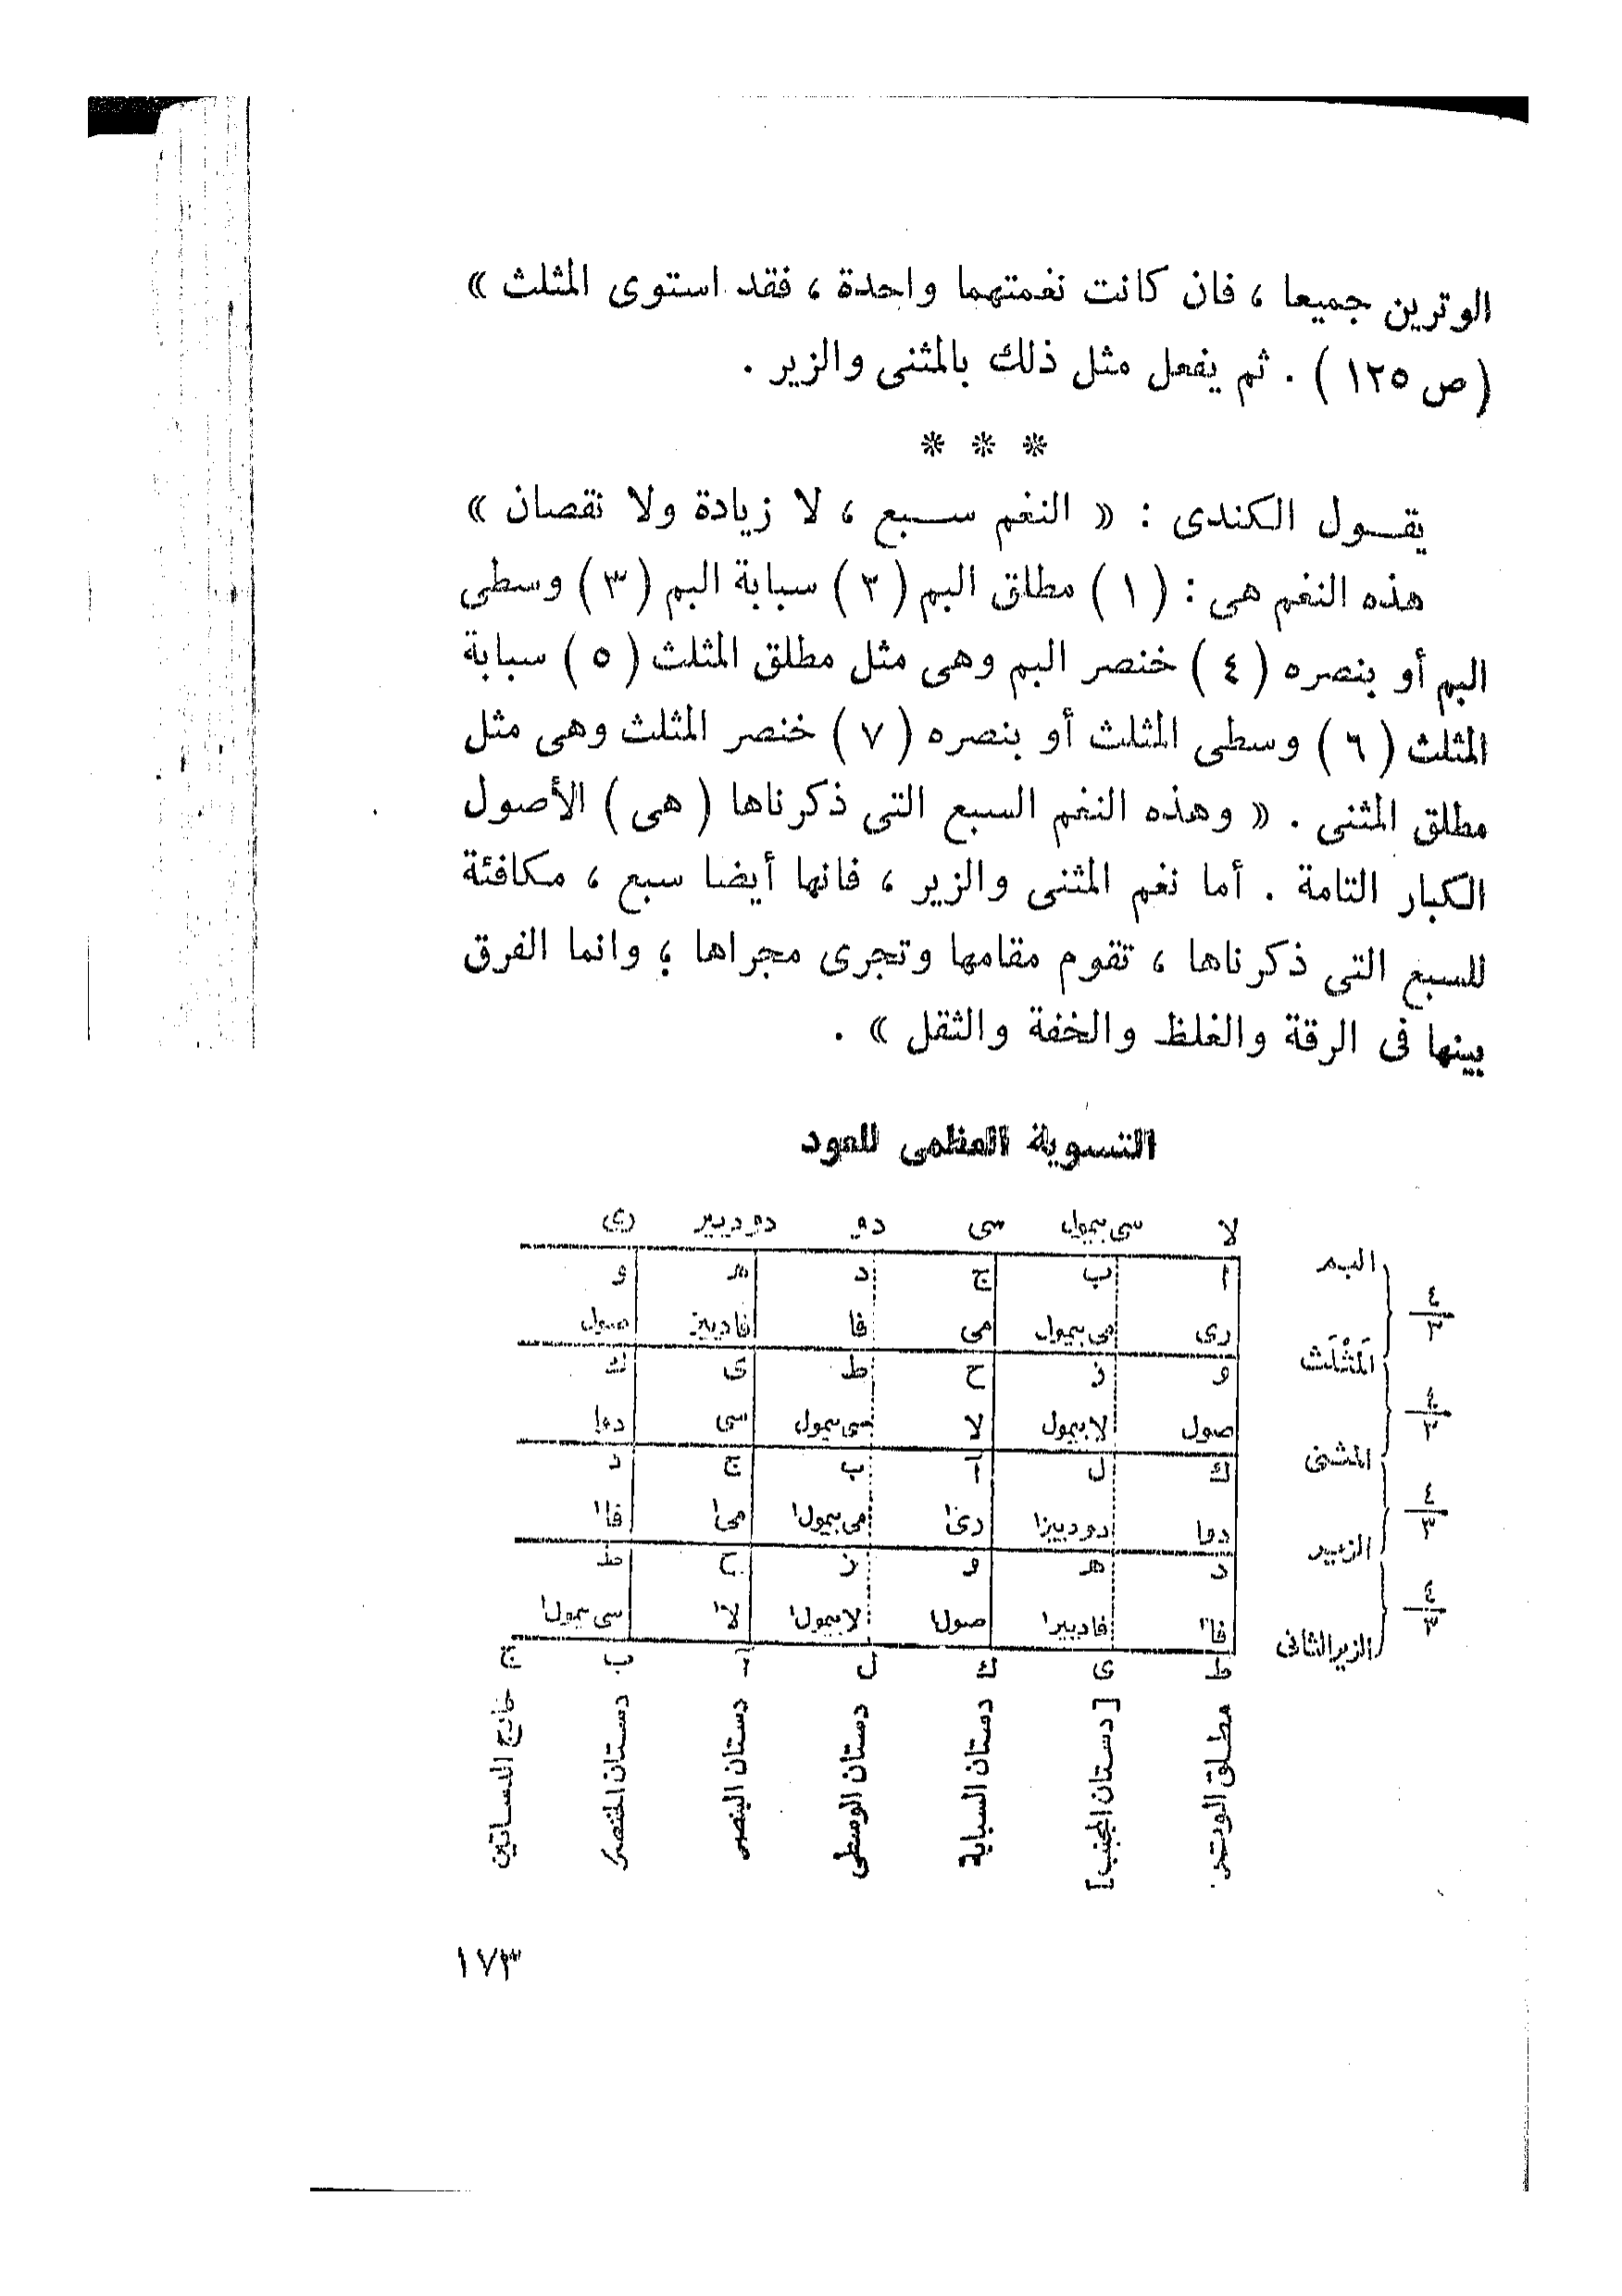 الوترين جميعا ، فان كانت نغمتهما واحدة ، فقد استوى المثلث »
( ص ١٢٥ ) . ثم يفعل مثل ذلك بالمثنى والزير .
* * *
يقول الكندى : « النغم سبع ، لا زيادة ولا نقصان »
هذه النغم هى : ( ١ ) مطلق البم ( ٢ ) سبابة البم ( ٣ ) وسطى
البم أو بنصره ( ٤ ) خنصر البم وهى مثل مطلق المثلث ( ٥ ) سبابة
المثلث ( ٦ ) وسطى المثلث أو بنصره ( ٧ ) خنصر المثلث وهى مثل
مطلق المثنى . « وهذه النغم السبع التى ذكرناها ( هى ) الأصول
الكبار التامة . أما نغم المثنى والزير ، فانها أيضا سبع ، مكافئة
للسبع التى ذكرناها ، تقوم مقامها وتجرى مجراها ؛ وانما الفرق
بينها فى الرقة والغلظ والخفة والثقل » .
التسوية العظمى للعود
لا سى بيمول سى دو دو دييز رى
البم
أ ب ج د ه و
٤/٣
رى مى بيمول مى فا فا دييز صول
المَثْلَث
و ز ح ط ى ك
٤/٣
صول لا بيمول لا سى بيمول سى دو١
المثنى
ك ل أ ب ج د
٤/٣
دو١ دو دييز١ رى١ مى بيمول١ مى١ فا١
الزير
د ه و ز ح ط
٤/٣
فا١ فا دييز١ صول١ لا بيمول١ لا١ سى بيمول١
الزير الثانى
ط ى ك ل أ ب ج
مطلق الوتر
[ دستان المجنب ]
دستان السبابة
دستان الوسطى
دستان البنصر
دستان الخنصر
خارج الدساتين
١٧٣